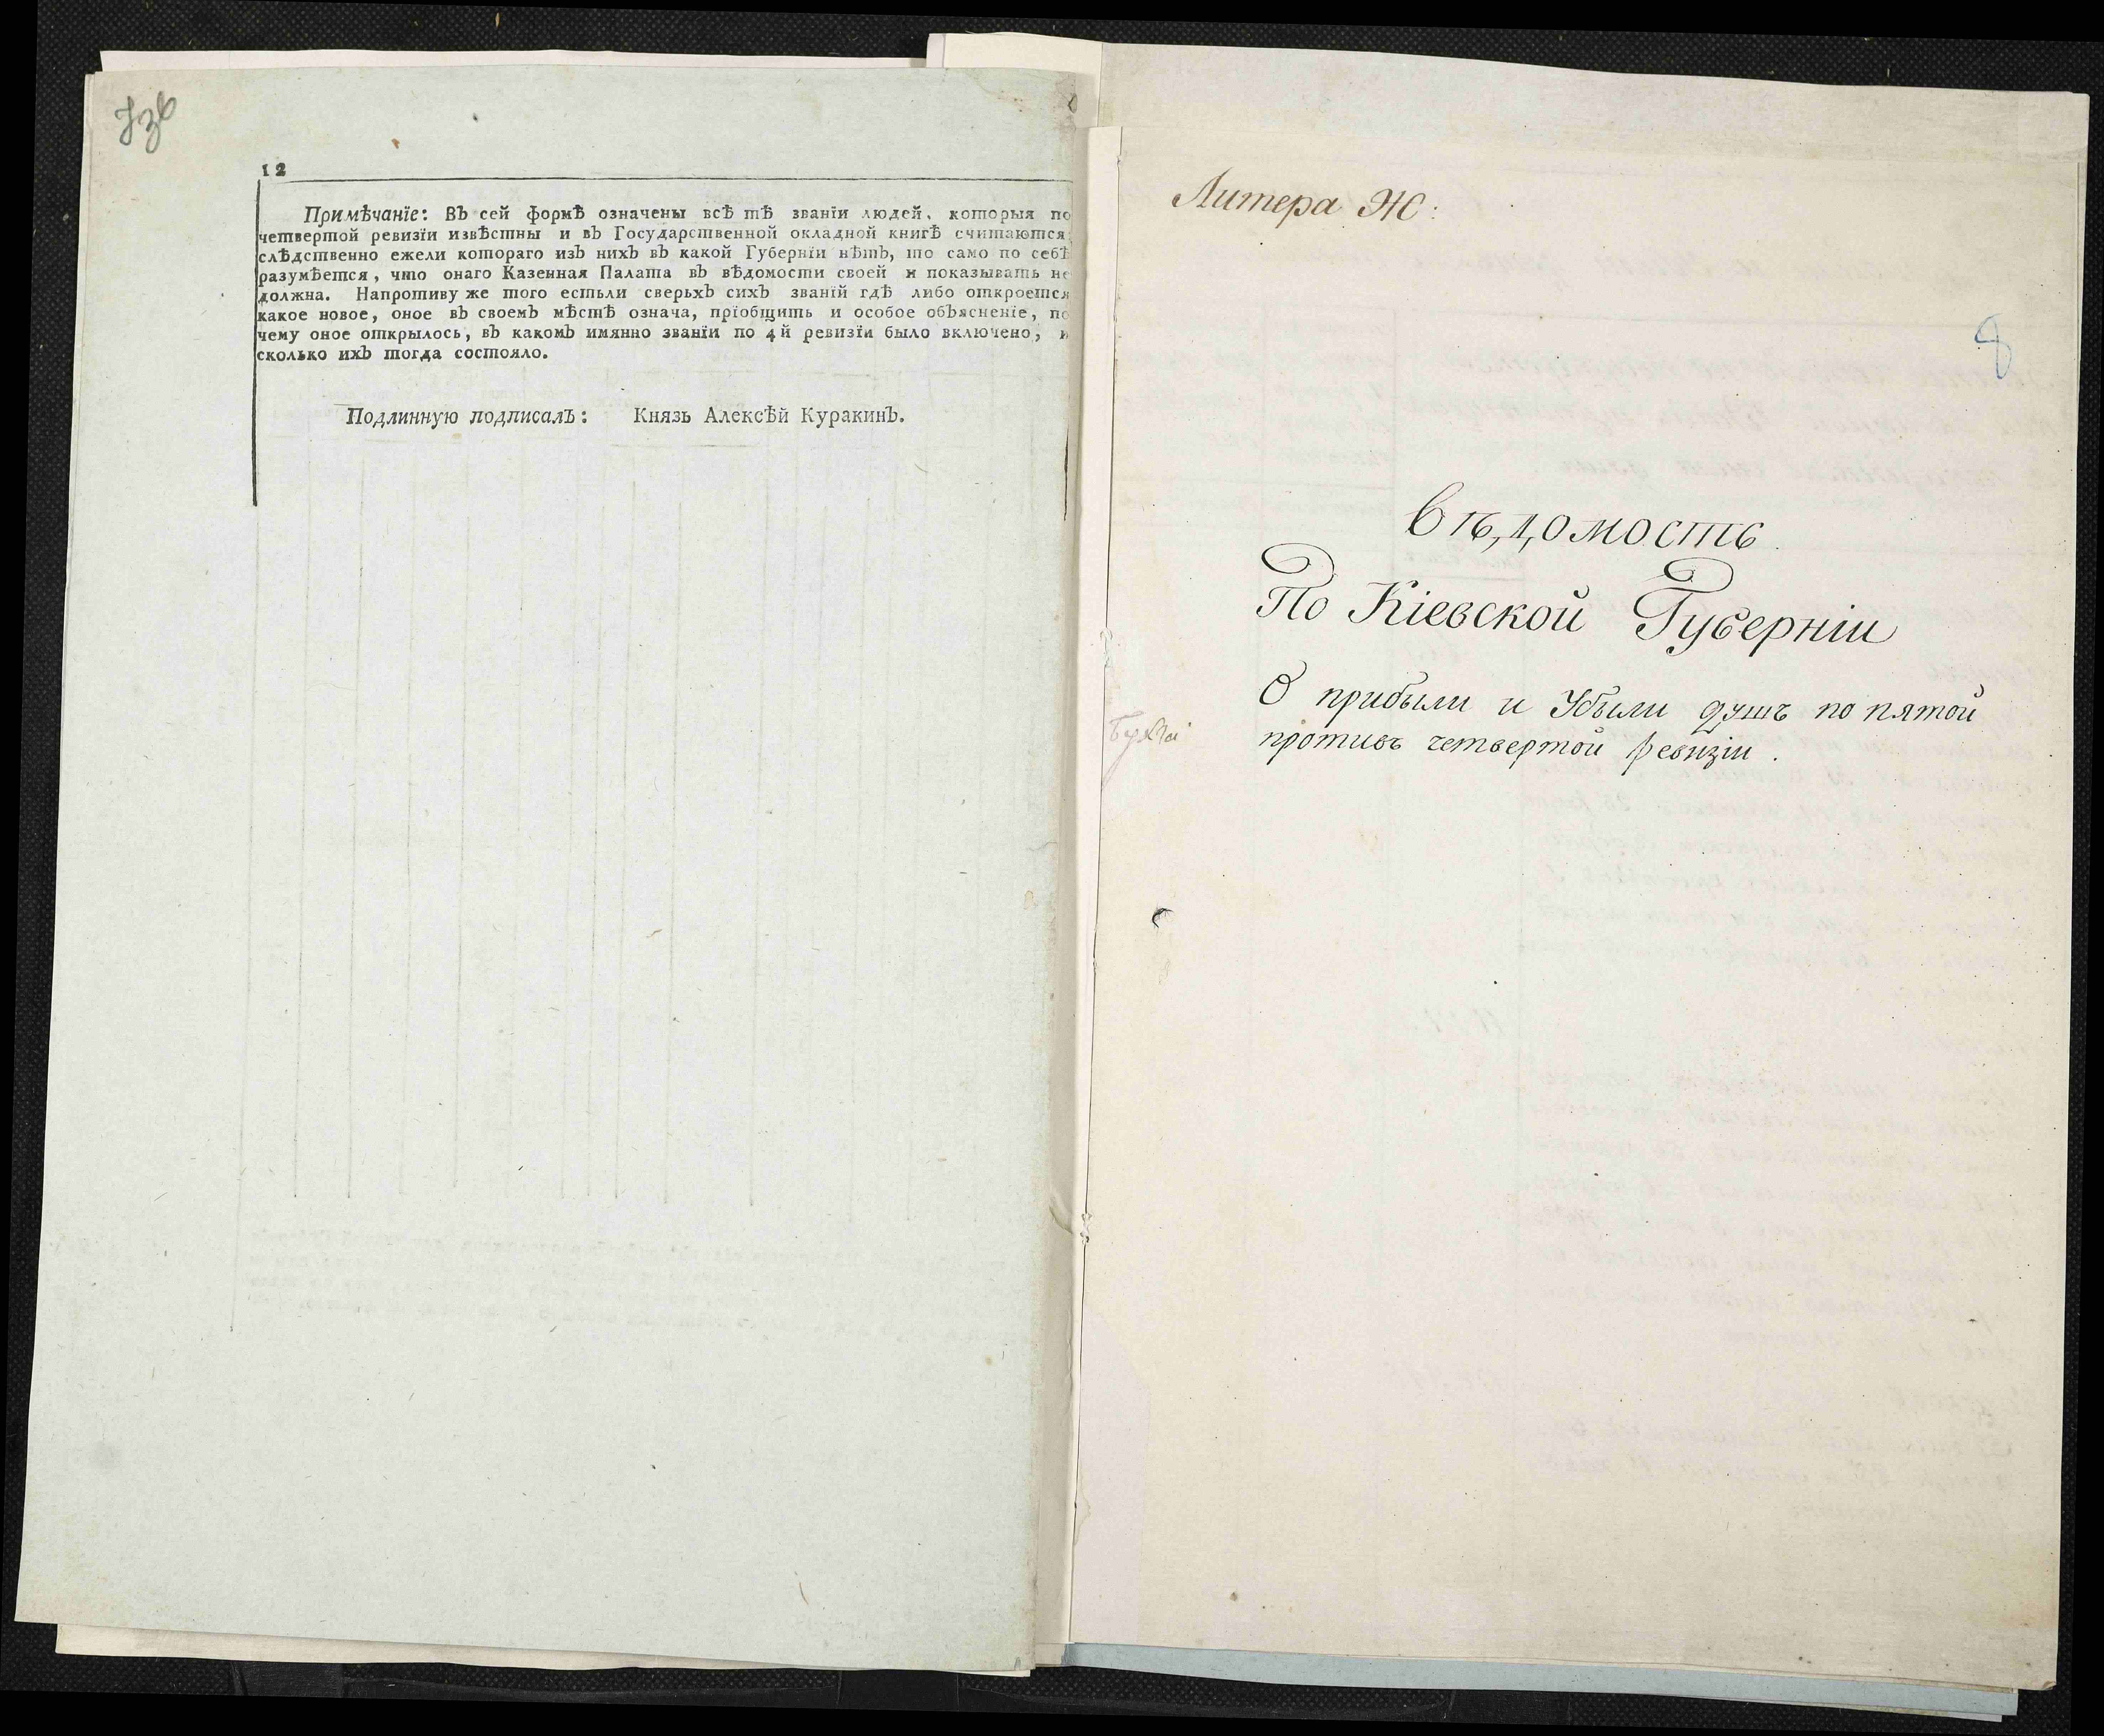 12
Примѣчанїе: Въ сей формѣ означены всѣ тѣ званїи людей, которыя по
четвертой ревизїи извѣстны и въ Государственной окладной книгѣ считаются;
слѣдственно ежели котораго изъ нихъ въ какой Губернїи нѣтъ, то само по себѣ
разумѣется, что онаго Казенная Палата въ вѣдомости своей и показывать не
должна. Напротиву же того естьли сверьхъ сихъ званїй гдѣ либо откроется
какое новое, оное въ своемъ мѣстѣ означа, прїобщить и особое объясненїе, по
чему оное открылось, въ какомъ имянно званїи по 4й ревизїи было включено, и
сколько ихъ тогда состояло.
Подлинную подписалъ: Князь Алексѣй Куракинъ.
Литера Ж:
8
Вѣдомость
По Кіевской Губерніи
О прибыли и Убыли душъ по пятой
противъ четвертой ревизіи.